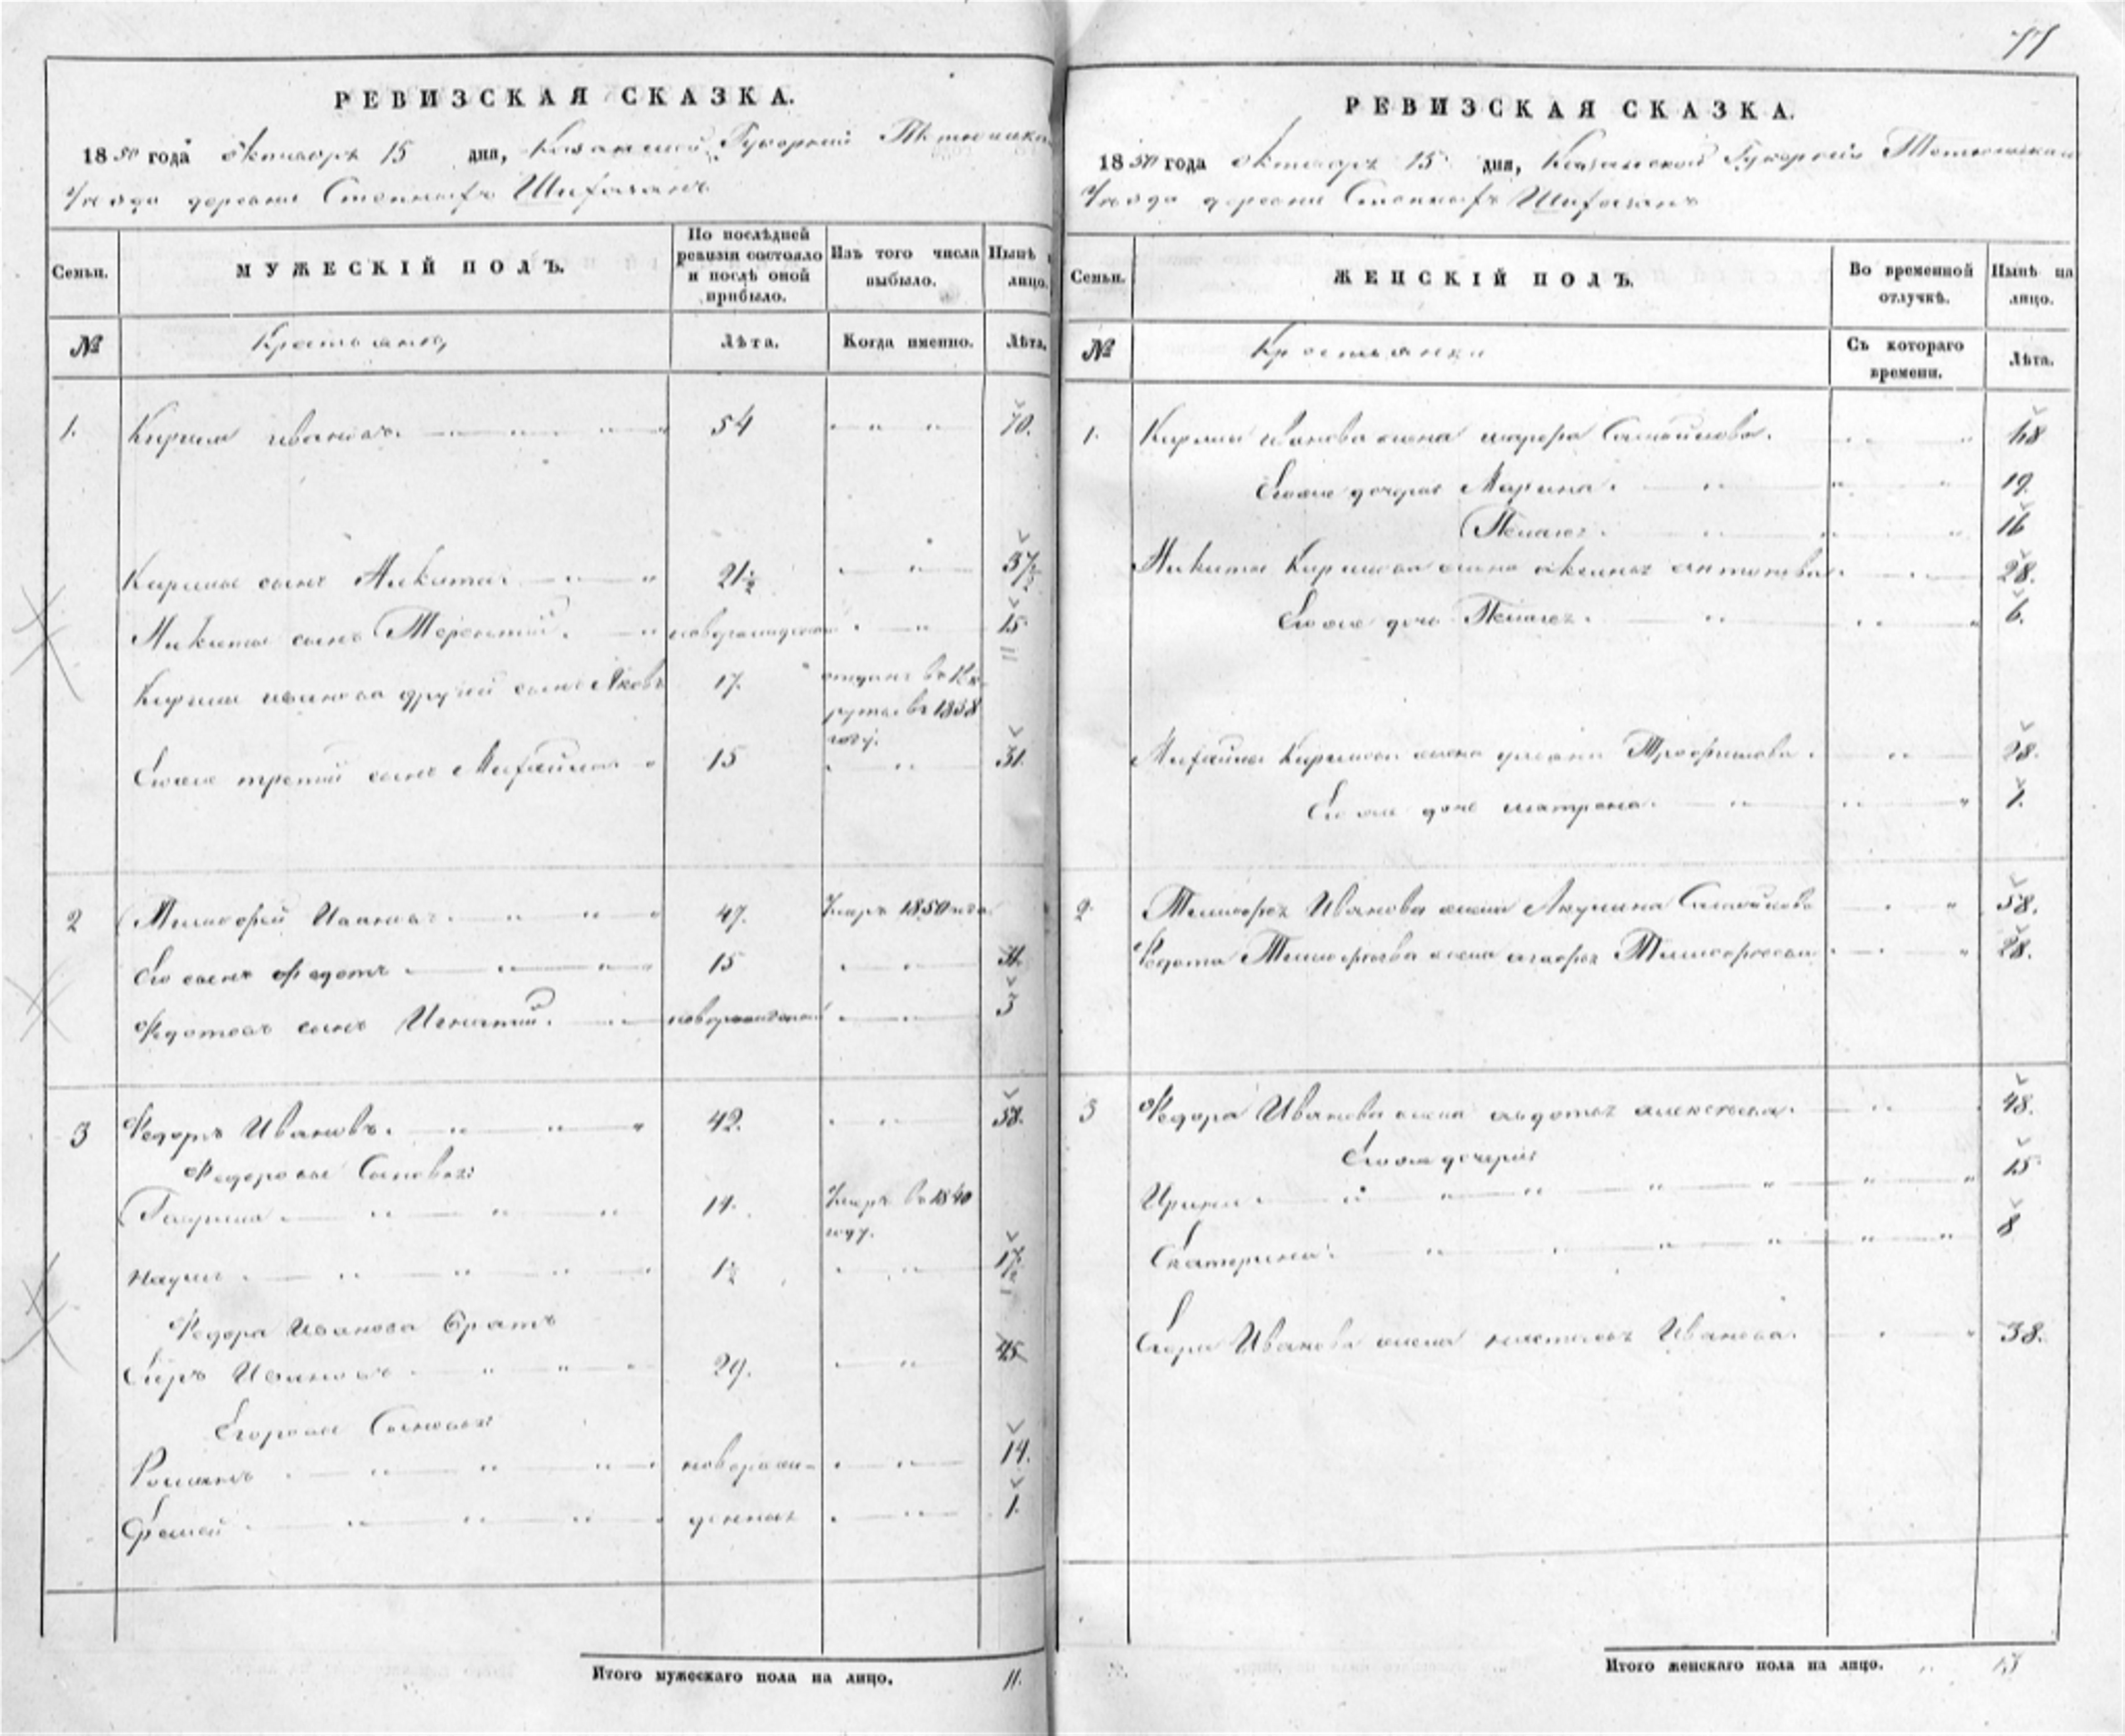 77
РЕВИЗСКАЯ СКАЗКА.
1850 года октября 15 дня, Казанской Губернии Тетюшска
Уезда деревни Степныхъ Шихазанъ
Семьи.
МУЖЕСКІЙ ПОЛЪ.
По послѣдней ревизіи состояло и послѣ оной прибыло.
Изъ того числа выбыло.
Нынѣ лицо.
№
Крестьяне,
Лѣта.
Когда именно.
Лѣта.
1. Кирила ивановъ. 54 70.
Кирилы сынъ Никита. 21 1/2 37 1/2
Никиты сынъ Терентий. новорожденной 15
Кирилы иванова другий сынъ Яковъ 17. отданъ в рекруты в 1838 году.
Егоже третий сынъ Михайла 15 31.
2 Тимофей Ивановъ. 47. Умеръ 1850 года
Его сынъ Федотъ 15 31.
Федотовъ сынъ Игнатий. новорожденной 3
3 Федоръ Ивановъ. 42. 58.
Федоровы Сыновья:
Гаврила 14. Умеръ в 1840 году.
Наумъ 1 1/2 17 1/2
Федора Иванова братъ
Егоръ Ивановъ 29. 45
Егоровы Сыновья:
Романъ новорож- 14.
Еремей денныя 1.
Итого мужескаго пола на лицо. 11.
РЕВИЗСКАЯ СКАЗКА.
1850 года октября 15 дня, Казанской Губернии Тетюшскаго
Уезда деревни Степныхъ Шихазанъ
Семьи.
ЖЕНСКІЙ ПОЛЪ.
Во временной отлучкѣ.
Нынѣ на лицо.
№
Крестьянки
Съ котораго времени.
Лѣта.
1. Кирилы Иванова жена марфа Самойлова. 68
Егоже дочери Марина. 19.
16
Никиты Кирилова жена аксинья антонова. 28.
Егоже дочь 6.
Михайлы Кирилова жена ульяна Трофимова. 28.
Егоже дочь матрона. 1.
2. Тимофея Иванова жена Акулина Самойлова 58.
Федота Тимофеева жена Тимофеева 28.
3 Федора Иванова жена авдотья алексеева. 48.
Егоже дочери:
Ирина 15
Екатерина. 8
Егора Иванова жена настасья Иванова. 38.
Итого женскаго пола на лицо. 13